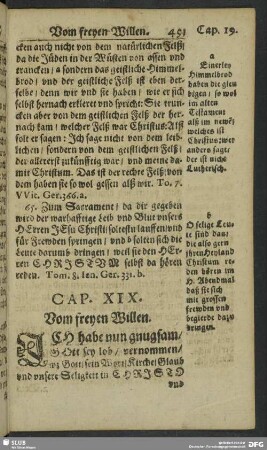 Vom freyen Willen. 491 Cap. 19.
cken auch nicht von dem natürlichen Felß/
da die Jüden in der Wüsten von assen vnd
truncken/ a sondern das geistliche Himmel-
brod/ vnd der geistliche Felß ist eben der-
selbe/ denn wir vnd sie haben; wie er sich
selbst hernach erkleret vnd spricht: Sie trun-
cken aber von dem geistlichen Felß/ der her-
nach kam/ welcher Felß war Christus: Alst
solt er sagen: Ich sage nicht von dem leib-
lichen/ sondern von dem geistlichen Felß/
der allererst zukünfftig war/ vnd meine da-
mit Christum. Das ist der rechte Felß/ von
dem haben sie so wol gessen als wir. To. 7.
VVit. Ger. 366. a.
65. Zum Sacrament/ da dir gegeben
wird der warhafftige Leib vnd Blut vnsers
HErren JEsu Christi soltestu lauffen/ vnd
für Frewden springen/ vnd b solten sich die
Leute darumb dringen/ weil sie HEr-
ren CHRISTUM selbst da hören
reden. Tom. 8. Ien. Ger. 331. b.
a
Einerley
Himmelbrod
haben die gleu
bigen/ so wol
im alten
Testament
als im newen
welches ist
Christus/ wer
anders sagt/
der ist nicht
Lutherisch.
b
O selige Leu-
te sind das/
die also gern
ihren Heyland
Christum re-
den hören im
H. Abendmal
daß sie sich
mit grossen
frewden vnd
begierde dazu
dringen.
CAP. XIX.
Vom freyen Willen.
JCH habe nun gnugsam/
GOtt sey lob/ vernommen/
was Gott/ sein Wort/ Kirche/ Glaub
vnd vnsere Seligkeit in CHRISTO
vnd
SLUB